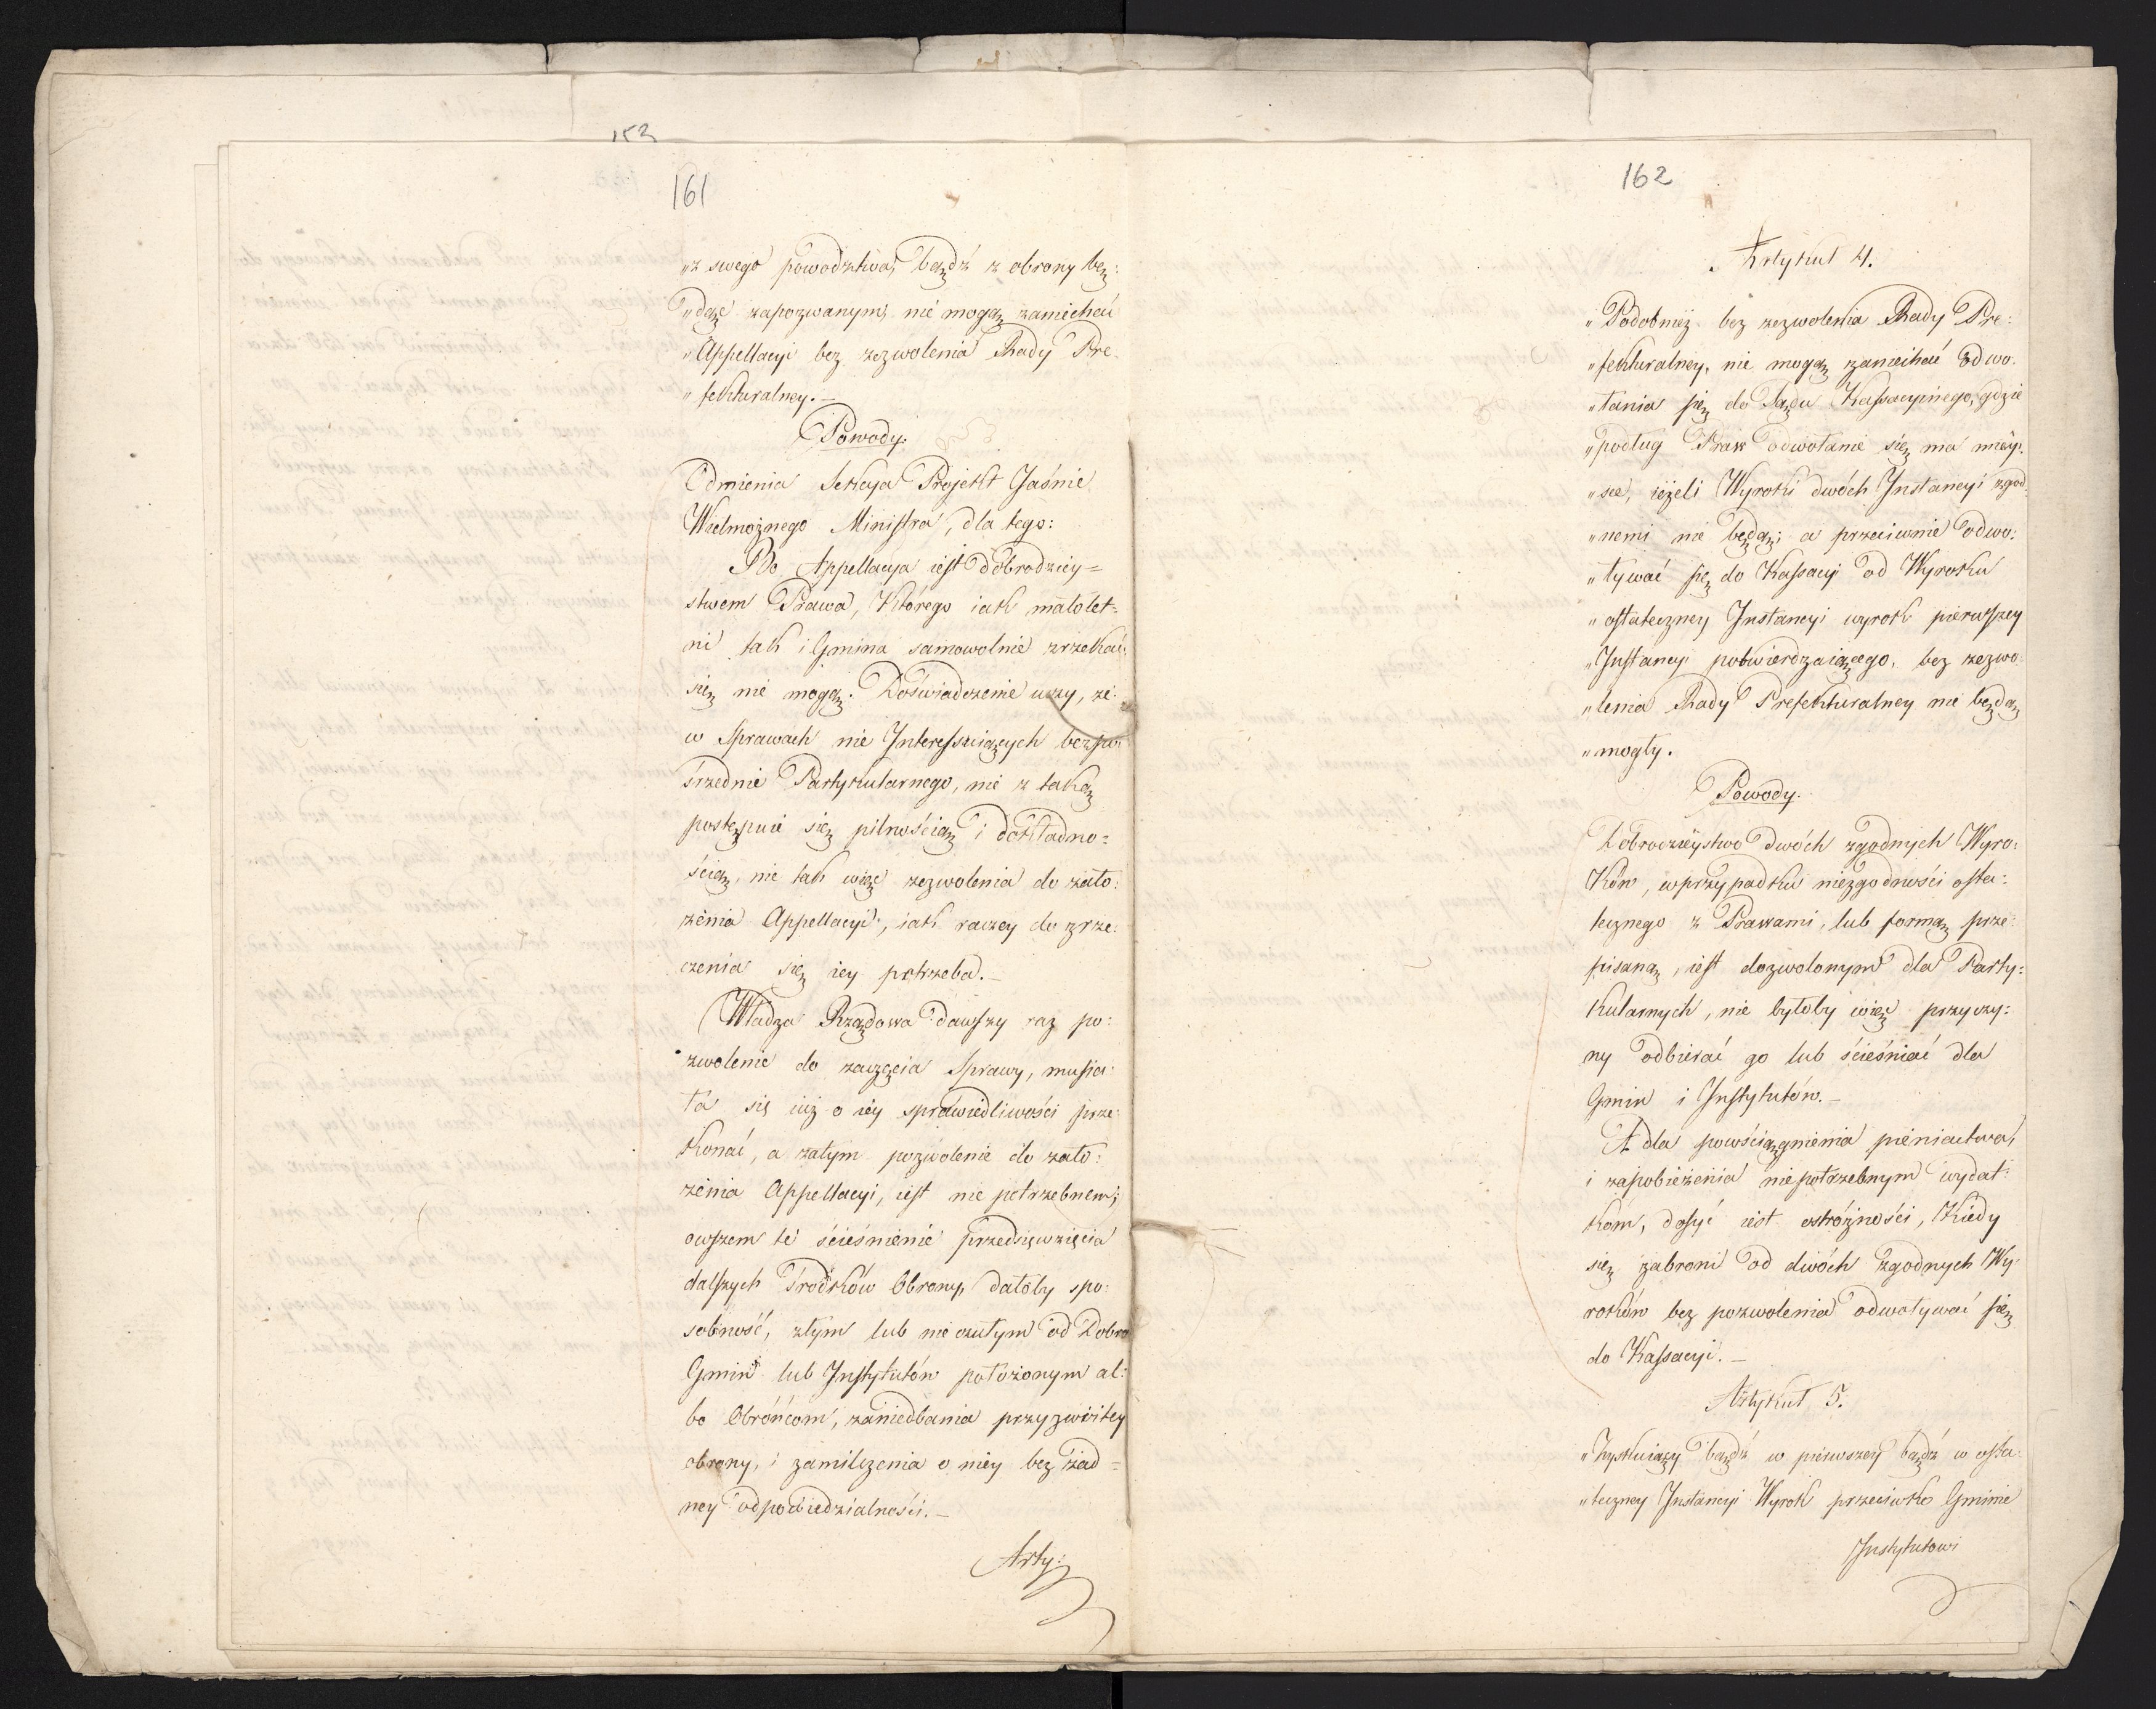 153
161
„z swego powodztwa, bądź z obrony bę:
„dąc zapozwanym, nie mogą zaniechać
„Appellacyi bez zezwolenia Rady Pre:
„fekturalney. —
Powody.
Odmienia Sekcya Projekt Jaśnie
Wielmożnego Ministra, dla tego:
Bo Appellacya iest dobrodziey=
stwem Prawa, którego iak małolet=
ni tak i Gmina samowolnie zrzekać
się nie mogą. Doświadczenie uczy, że
w Sprawach nie Interessuiących bezpo:
średnie Partykularnego, nie z taką
postępuie się pilnością i dokładno=
ścią, nie tak więc zezwolenia do zało:
żenia Appellacyi, iak raczey do zrze:
czenia się iey potrzeba. —
Władza Rządowa dawszy raz po:
zwolenie do zaczęcia Sprawy, musia:
ła się iuż o iey sprawiedliwości prze:
konać, a zatym pozwolenie do zało:
żenia Appellacyi, iest nie potrzebnem;
owszem te ścieśnienie przedsięwzięcia
dalszych środków Obrony, dałoby spo:
sobność, złym lub nie czułym od Dobra
Gmin lub Instytutów położonym al:
bo Obróńcom, zaniedbania przyzwoitey
obrony, i zamilczenia o niey bez żad=
ney odpowiedzialności. —
Arty:
162
Artykuł 4.
„Podobnież bez zezwolenia Rady Pre:
„fekturalney, nie mogą zaniechać odwo:
„łania się do Sądu Kassacyinego, gdzie
„podług Praw odwołanie się ma miey:
„sce, ieżeli Wyroki dwóch Instancyi zgod:
„nemi nie będą; a przeciwnie odwo:
„ływać się do Kassacyi od Wyroku
„ostateczney Instancyi wyrok pierwszey
„Instancyi potwierdzaiącego, bez zezwo:
„lenia Rady Prefekturalney nie będą
„mogły.
Powody.
Dobrodzieystwo dwóch zgodnych Wyro:
ków, w przypadku niezgodności osta:
tecznego z Prawami, lub formą prze:
pisaną, iest dozwolonym dla Party:
kularnych, nie byłoby więc przyczy:
ny odbierać go lub ścieśniać dla
Gmin i Instytutów. —
A dla powściągnienia pieniactwa,
i zapobieżenia niepotrzebnym wydat:
kom, dosyć iest ostróżności, kiedy
się zabroni od dwóch zgodnych Wy:
roków bez pozwolenia odwoływać się
do Kassacyi. —
Artykuł 5.
„Zyskuiący bądź w pierwszey bądź w osta:
„teczney Instancyi Wyrok przeciwko Gminie
Instytutowi